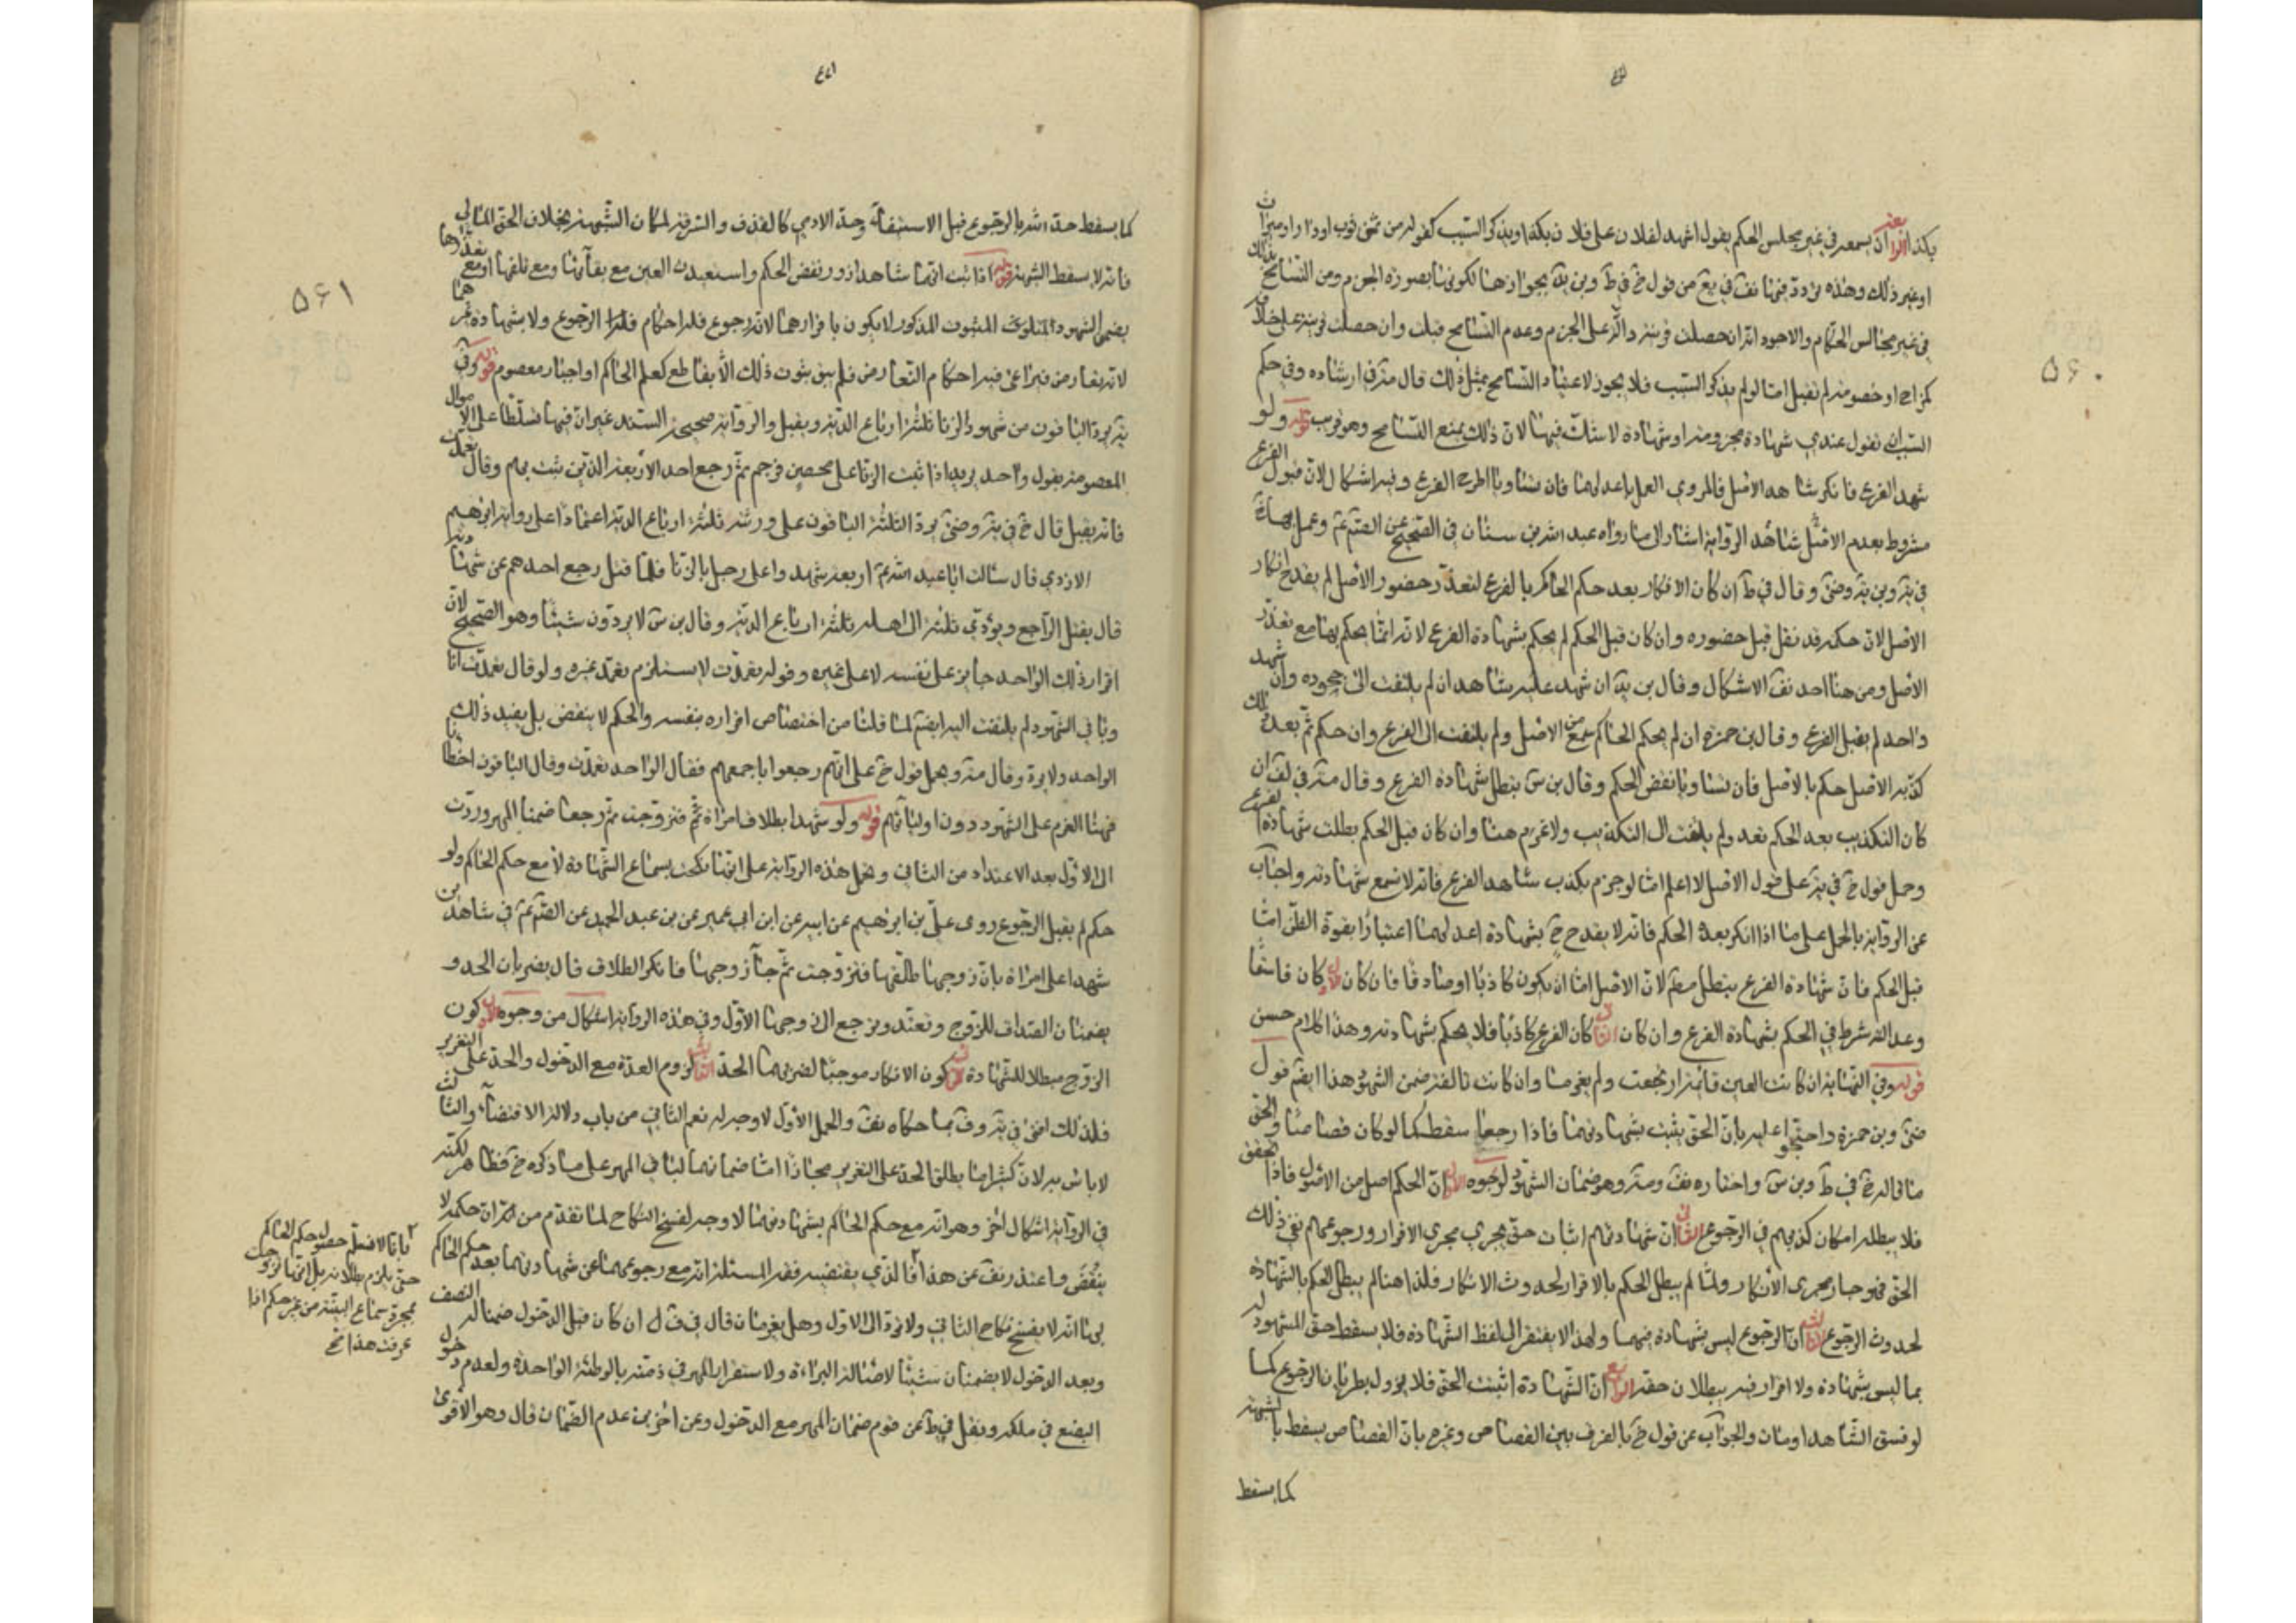 بكذا الرابعة ان يسمعه في غير مجلس الحكم يقول اشهد لفلان على فلان بكذا ويذكر السبب كقوله من ثمن ثوب او دار او ميراث
او غير ذلك وهذه مردد فيها نقف في يع من قول خ في ط وبن بة بجوازها لكونها بصورة الجزم ومن التسامح بذلك
في غير مجالس الحكام والاجود انه ان حصلت قرينة دالة على الجزم وعدم التسامح قبلت وان حصلت قرينة على خلافه
كمزاح او خصومة لم تقبل اما لو لم يذكر السبب فلا يجوز لاعتياد التسامح بمثل ذلك قال مة في ارشاده وفي حكم
السبب ان يقول عندي شهادة مجزومة او شهادة لا شك فيها لان ذلك يمنع التسامح وهو قريب قوله ولو
شهد الفرع فانكر شاهد الاصل فالمروي العمل باعدلهما فان تساويا اطرح الفرع وفيه اشكال لان قبول الفرع
مشروط بعدم الاصل شاهد الرواية اشار الى ما رواه عبد الله بن سنان في الصحيح عن الصم عم وعمل بها خ
في ية وبن ية وضى وقال في ط ان كان الانكار بعد حكم الحاكم بالفرع لتعذر حضور الاصل لم يقدح انكار
الاصل لان حكمه قد نفذ قبل حضوره وان كان قبل الحكم لم يحكم بشهادة الفرع لانه انما يحكم بها مع تعذر
الاصل ومن هنا احد نقف الاشكال وقال بن بة ان شهد عليه شاهدان لم يلتفت الى جحوده وان شهد
واحد لم يقبل الفرع وقال بن حمزة ان لم يحكم الحاكم سمع من الاصل ولم يلتفت الى الفرع وان حكم ثم بعد ذلك
كذبه الاصل حكم بالاصل فان تساويا نقض الحكم وقال بن س يبطل شهادة الفرع وقال مة في لف ان
كان التكذيب بعد الحكم نفذ ولم يلتفت الى التكذيب ولا غرم هنا وان كان قبل الحكم بطلت شهادة الفرع
وحمل قول خ في ية على قول الاصل لا اعلم اما لو جزم بكذب شاهد الفرع فانه لا تسمع شهادته واجاب
عن الرواية بالحمل على ما اذا انكر بعد الحكم فانه لا يقدح ح بشهادة اعدلهما اعتبارا بقوة الظن اما
قبل الحكم فان شهادة الفرع يبطل مطم لان الاصل اما ان يكون كاذبا او صادقا فان كان الاول كان فاسقا
وعدالته شرط في الحكم بشهادة الفرع وان كان الثاني كان الفرع كاذبا فلا يحكم بشهادته وهذا كلام حسن
قوله وفي النهاية ان كانت العين قائمة ارتجعت ولم يغرما وان كانت تالفة ضمن الشهود هذا ايضم قول
ضى وبن حمزة واحتجوا عليه بان الحق يثبت بشهادتهما فاذا رجعا سقط كما لو كان قصاصا والحق
ما قاله خ في ط وبن س واختاره نقف ومة وهو ضمان الشهود لوجوه الاول ان الحكم اصل من الاصول فاذا تحقق
فلا يبطله امكان كذبهم في الرجوع الثاني ان شهادتهم اثبات حق يجري مجرى الاقرار ورجوعهم نفي ذلك
الحق فهو جار مجرى الانكار ولما لم يبطل الحكم بالاقرار لحدوث الانكار فلذا هنا لم يبطل الحكم بالشهادة
لحدوث الرجوع الثالث ان الرجوع ليس بشهادة فيهما ولهذا لا يفتقر الى لفظ الشهادة فلا يسقط حق المشهود له
بما ليس بشهادة ولا اقرار فيه ببطلان حقه الرابع ان الشهادة اثبتت الحق فلا يزول بطريان الرجوع كما
لو فسق الشاهد او مات والجواب عن قول خ بالفرق بين القصاص وغيره بان القصاص يسقط بالشبهة
كما يسقط
٥٦٠
كما يسقط حد الله بالرجوع قبل الاستيفاء وحد الادمي كالقذف والسرقة لمكان الشبهة بخلاف الحق المالي
فانه لا يسقط الشبهة قوله اذا ثبت انهما شاهدا زور نقض الحكم واستعيدت العين مع بقائها ومع تلفها او مع تعذرها
يضمن الشهود المتلوف الثبوت المذكور لا يكون باقرارهما لانه رجوع فله احكام الرجوع ولا بشهادة غيرهما
لانه تعارض فيراعى فيه احكام التعارض فلم يبق ثبوت ذلك الا بقاطع كعلم الحاكم او اخبار معصوم قوله وفي
ية يرد الباقون من شهود الزنا ثلثة ارباع الدية ويقتل والرواية صحيحة السند غير ان فيها تسلطا على الاموال
المعصومة بقول واحد يريد اذا ثبت الزنا على محصن فرجم ثم رجع احد الاربعة الذين ثبت بهم وقال تعمدت
فانه يقتل قال خ في ية وضى يرد الثلثة الباقون على ورثته ثلثة ارباع الدية اعتمادا على رواية ابرهيم
الازدي قال سالت ابا عبد الله عم اربعة شهدوا على رجل بالزنا فلما قتل رجع احدهم عن شهادته
قال يقتل الراجع ويؤدي ثلثة الى اهله ثلثة ارباع الدية وقال بن س لا يردون شيئا وهو الصحيح لان
اقرار ذلك الواحد جايز على نفسه لا على غيره وقوله تعمدت لا يستلزم تعمد غيره ولو قال تعمدت انا
وباقي الشهود لم يلتفت اليه ايضم لما قلنا من اختصاص اقراره بنفسه والحكم لا ينقض بل يقيد ذلك
الواحد ولا يرد وقال مة ويحمل قول خ على انهم رجعوا باجمعهم فقال الواحد تعمدت وقال الباقون اخطانا
فهنا الغرم على الشهود دون اوليائهم قوله ولو شهدا بطلاق امراة ثم فتزوجت ثم رجعا ضمنا المهر وردت
الى الاول بعد الاعتداد من الثاني وتحمل هذه الرواية على انها نكحت بسماع الشهادة لا مع حكم الحاكم ولو
حكم لم يقبل الرجوع روى علي بن ابرهيم عن ابيه عن ابن ابي عمير عن بن عبد الحميد عن الصم عم في شاهدين
شهدا على امراة بان زوجها طلقها فتزوجت ثم جآء زوجها فانكر الطلاق قال يضربان الحد و
يضمنان الصداق للزوج وتعتد وترجع الى زوجها الاول وفي هذه الرواية اشكال من وجوه الاول كون
الزوج مبطلا للشهادة الثاني كون الانكار موجبا لضربهما الحد الثالث لزوم العدة مع الدخول والحد على التعزير
فلذلك افتى في ية وف بما حكاه نقف والحمل الاول لا وجه له نعم الثاني من باب دلالة الاقتضآء والثالث
لا باس به لان كثيرا ما يطلق الحد على التعزير مجازا اما ضمانهما لباقي المهر على ما ذكره خ فظاهر لكنه
في الرواية اشكال اخر وهو انه مع حكم الحاكم بشهادتهما لا وجه لفسخ النكاح لما تقدم من انه ان حكمه لا
ينقض واعتذر نقف عن هذا فالذي يقتضيه فقه المسئلة انه مع رجوعهما عن شهادتهما بعد حكم الحاكم
بها انه لا يفسخ نكاح الثاني ولا ترد الى الاول وهل يغرمان قال في ف ل ان كان قبل الدخول ضمنا له النصف
وبعد الدخول لا يضمنان شيئا لاصالة البراءة ولاستقرار المهر في ذمته بالوطئة الواحدة ولعدم دخول
البضع في ملكه ونقل في ط عن قوم ضمان المهر مع الدخول وعن اخرين عدم الضمان قال وهو الاقوى
بانا لا نسلم حصول حكم الحاكم
حتى يلزم بطلانه بل انها تزوجت
بمجرد سماع البينة من غير حكم اذا
عرفت هذا نخ
٥٦١